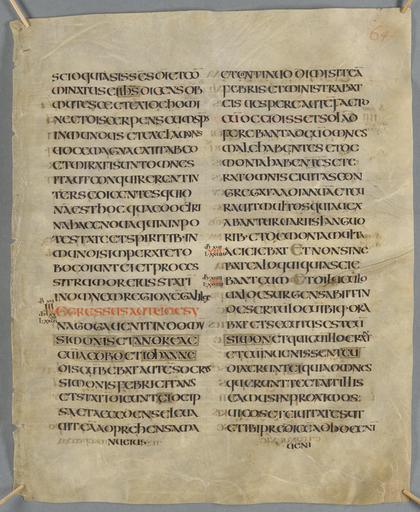 SCIO QUIA SIS SCS DI ET CO
MINATUS EI IHS DICENS OB
MUTESCE ET EXI DE HOMI
NE ET DISCERPENS EUM SPS
INMUNDUS ET EXCLAMANS
UOCE MAGNA EXIIT AB EO
ET MIRATI SUNT OMNES
ITA UT CONQUIRERENT IN
TER SE DICENTES QUID
NA EST HOC QUAE DOCTRI
NA HAEC NOUA QUIA IN PO
TESTATE ET SPIRITIB IN
MUNDIS IMPERAT ET O
BOEDIUNT EI ET PROCES
SIT RUMOR EIUS STATI
IN OMNEM REGIONE GALILEE
EGRESSUS AUTEM DE SY
NAGOGA UENIT IN DOMU
SIMONIS ET ANDREAE
CUM IACOBO ET IOHANNE
DISCUMBEBAT AUTE SOCRUS
SIMONIS FEBRICITANS
ET STATIM DICUNT EI DE IP
SA ET ACCEDENS ELEUA
UIT EAM ADPREHENSA MA
NU EIUS
64
ET CONTINUO DIMISIT EA
FEBRIS ET MINISTRABAT
EIS UESPERE AUTE FACTO
CUM OCCIDISSET SOL AD
FEREBANT AD EU OMNES
MALE HABENTES ET DE
MONIA HABENTES ET E
RAT OMNIS CIUITAS CON
GREGATA AD IANUA ET CU
RAUIT MULTOS QUI UEX
ABANTUR UARIIS LANGUO
RIB ET DEMONIA MULTA
EICIEBAT ET NON SINE
BAT EA LOQUI QUIA SCIE
BANT EUM ET DILUCULO
UALDE SURGENS ABIIT IN
DESERTU LOCU IBIQ ORA
BAT ET SECUTUS EST EU
SIMON ET QUI CU ILLO ERANT
ET CUM INUENISSENT EU
DIXERUNT EI QUIA OMNES
QUERUNT TE ET AIT ILLIS
EAMUS IN PROXIMOS
UICOS ET CIUITATES UT
ET IBI PREDICE AD HOC ENI
UENI